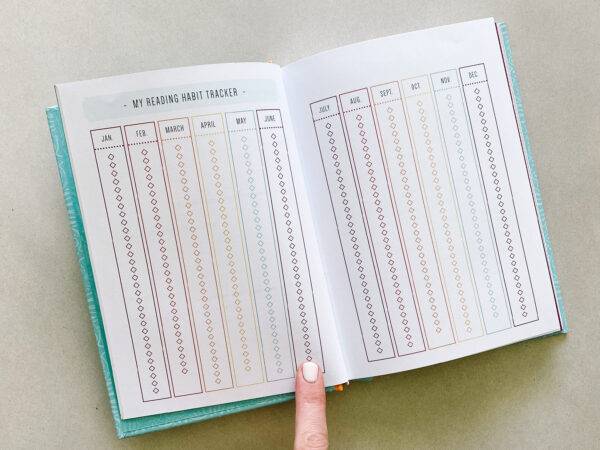 - MY READING HABIT TRACKER -
JAN. FEB. MARCH APRIL MAY JUNE
JULY AUG. SEPT. OCT. NOV. DEC.